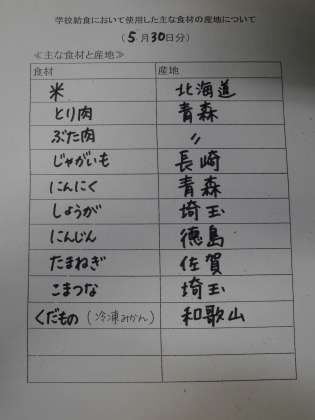 学校給食において使用した主な食材の産地について
(5月30日分)
≪主な食材と産地≫
食材 産地
米 北海道
とり肉 青森
ぶた肉 〃
じゃがいも 長崎
にんにく 青森
しょうが 埼玉
にんじん 徳島
たまねぎ 佐賀
こまつな 埼玉
くだもの (冷凍みかん) 和歌山